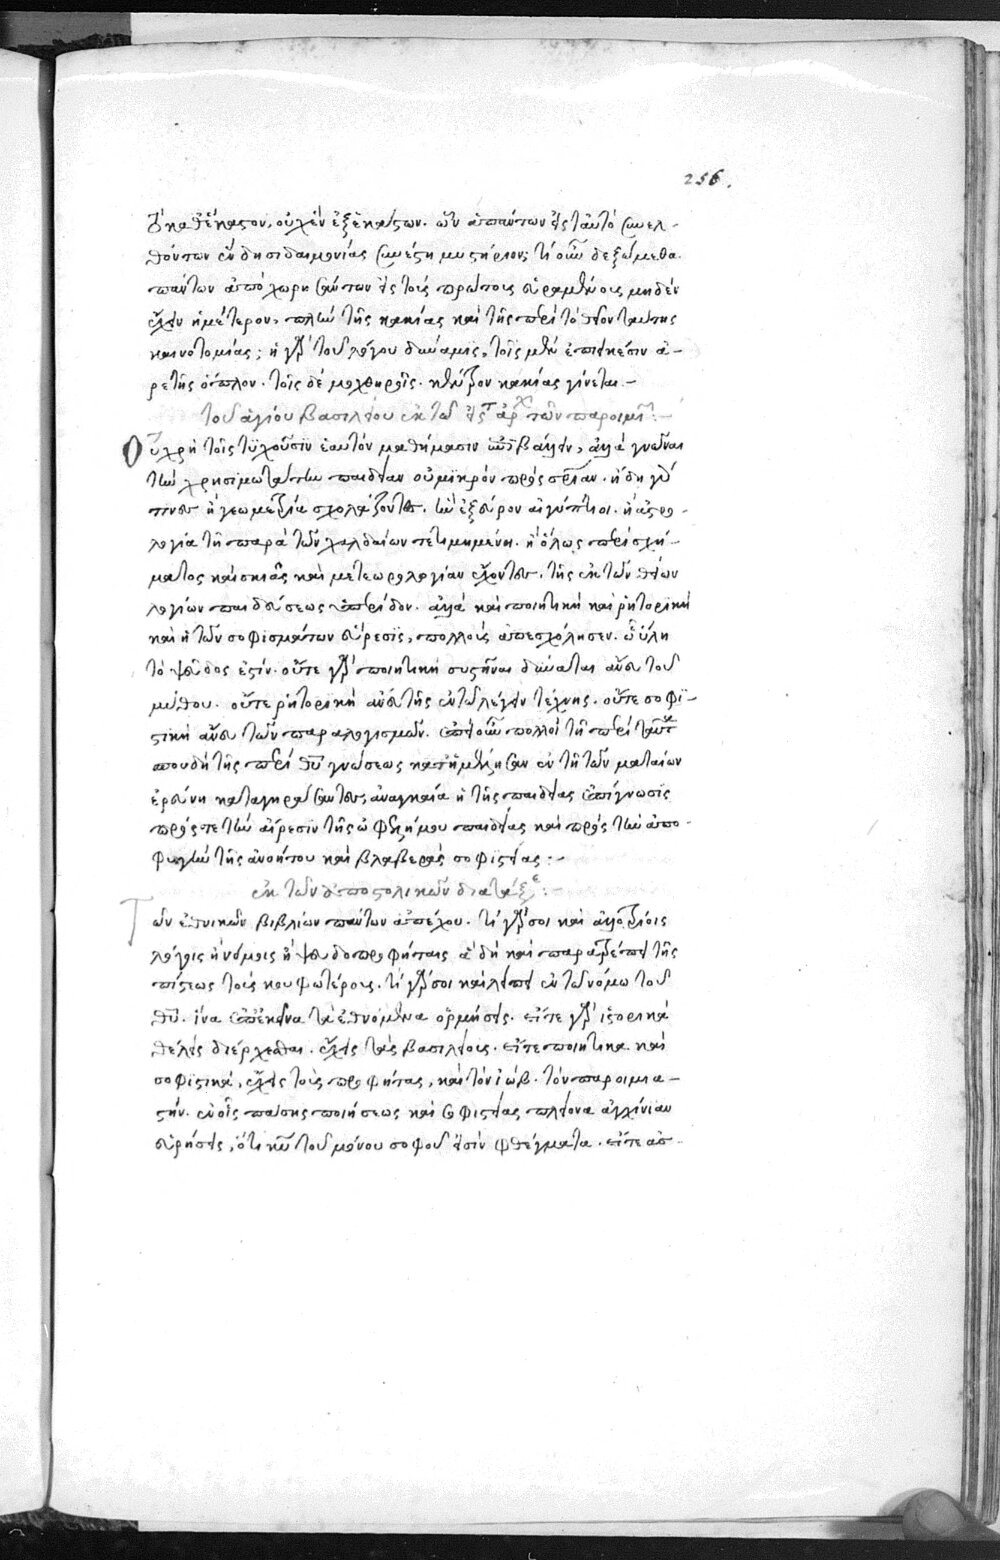 256.
καθέκαστον, οὐχ ἓν ἐξ ἑκάστων. ὧν ἁπάντων εἰς ταυτὸ συνελ-
θόντων ἓν δεισιδαιμονίας συνέστη μυστήριον; τί οὖν δεξώμεθα.
πάντων ἀποχωρησάντων εἰς τοὺς πρώτους εὑραμένους, μηδὲν
ἔχειν ἡμέτερον, πλὴν τῆς κακίας καὶ τῆς περὶ τὸ θεῖον ταύτης
καινοτομίας; ἡ γὰρ τοῦ λόγου δύναμις, τοῖς μὲν ἐπιεικέσιν ἀ-
ρετῆς ὅπλον. τοῖς δὲ μοχθηροῖς. κέντρον κακίας γίνεται.-
τοῦ ἁγίου βασιλείου ἐκ τοῦ εἰς τ ἀρχ τῶν παροιμι:-
Οὐ χρὴ τοῖς τυχοῦσιν ἑαυτὸν μαθήμασιν ὑποβάλλειν, ἀλλὰ γνῶναι
τὴν χρησιμωτάτην παιδείαν οὐ μικρὸν πρὸς σρίαν. ἤδη γάρ
τινες ἢ γεωμετρία σχολάζοντες. ἣν ἐξεῦρον αἰγύπτιοι. ἢ ἀστρο-
λογία τῇ παρὰ τῶν χαλδαίων τετιμημένῃ. ἢ ὅλως περὶ σχή-
ματος καὶ σκιᾶς καὶ μετεωρολογίαν ἔχοντες. τῆς ἐκ τῶν θείων
λογίων παιδεύσεως ὑπερεῖδον. ἀλλὰ καὶ ποιητικὴ καὶ ῥητορικὴ
καὶ ἡ τῶν σοφισμάτων εὕρεσις, πολλοὺς ἀπεσχόλησεν. ὧ ὕλη
τὸ ψεῦδος ἐστίν. οὔτε γὰρ ποιητικὴ συστῆναι δύναται ἄνευ τοῦ
μύθου. οὔτε ῥητορικὴ ἄνευ τῆς ἐν τῶ λέγειν τέχνης. οὔτε σοφι-
στικὴ ἄνευ τῶν παραλογισμῶν. ἐπεὶ οὖν πολλοὶ τῇ περὶ ταῦτ
σπουδῇ τῆς περὶ θυ γνώσεως κατημέλησαν ἐν τῇ τῶν ματαίων
ἐρεύνῃ καταγηράσαντες, ἀναγκαία ἡ τῆς παιδείας ἐπίγνωσις
πρός τε τὴν αἵρεσιν τῆς ὠφελίμου παιδείας καὶ πρὸς τὴν ἀπο-
φυγὴν τῆς ἀνοήτου καὶ βλαβερᾶς σοφιστείας:-
ἐκ τῶν ἀποστολικῶν διατάξε:
Τῶν ἐθνικῶν βιβλίων πάντων ἀπέχου. τί γάρ σοι καὶ ἀλλοτρίοις
λόγοις ἢ νόμοις ἢ ψευδοπροφήταις ἃ δὴ καὶ παρατρέπει τῆς
πίστεως τοὺς κουφωτέρους. τί γάρ σοι καὶ λείπει ἐν τῶ νόμω τοῦ
θυ. ἵνα ἐπ ἐκεῖνα τὰ ἐθνόμενα ὁρμήσεις. εἴτε γὰρ ἱστορικὰ
θέλεις διέρχεσθαι. ἔχεις τὰς βασιλείους. εἴτε ποιητικὰ καὶ
σοφιστικά, ἔχεις τοὺς προφήτας, καὶ τὸν ἰώβ. τὸν παροιμια-
στήν. ἐν οἷς πάσης ποιήσεως καὶ σοφιστείας πλείονα ἀγχίνοιαν
εὑρήσεις, ὅτι κυ τοῦ μόνου σοφοῦ εἰσὶν φθέγματα. εἴτε ἀσ-